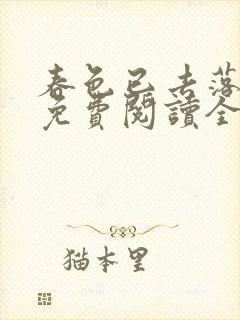 春色已去落
免費閱讀全
猫本里